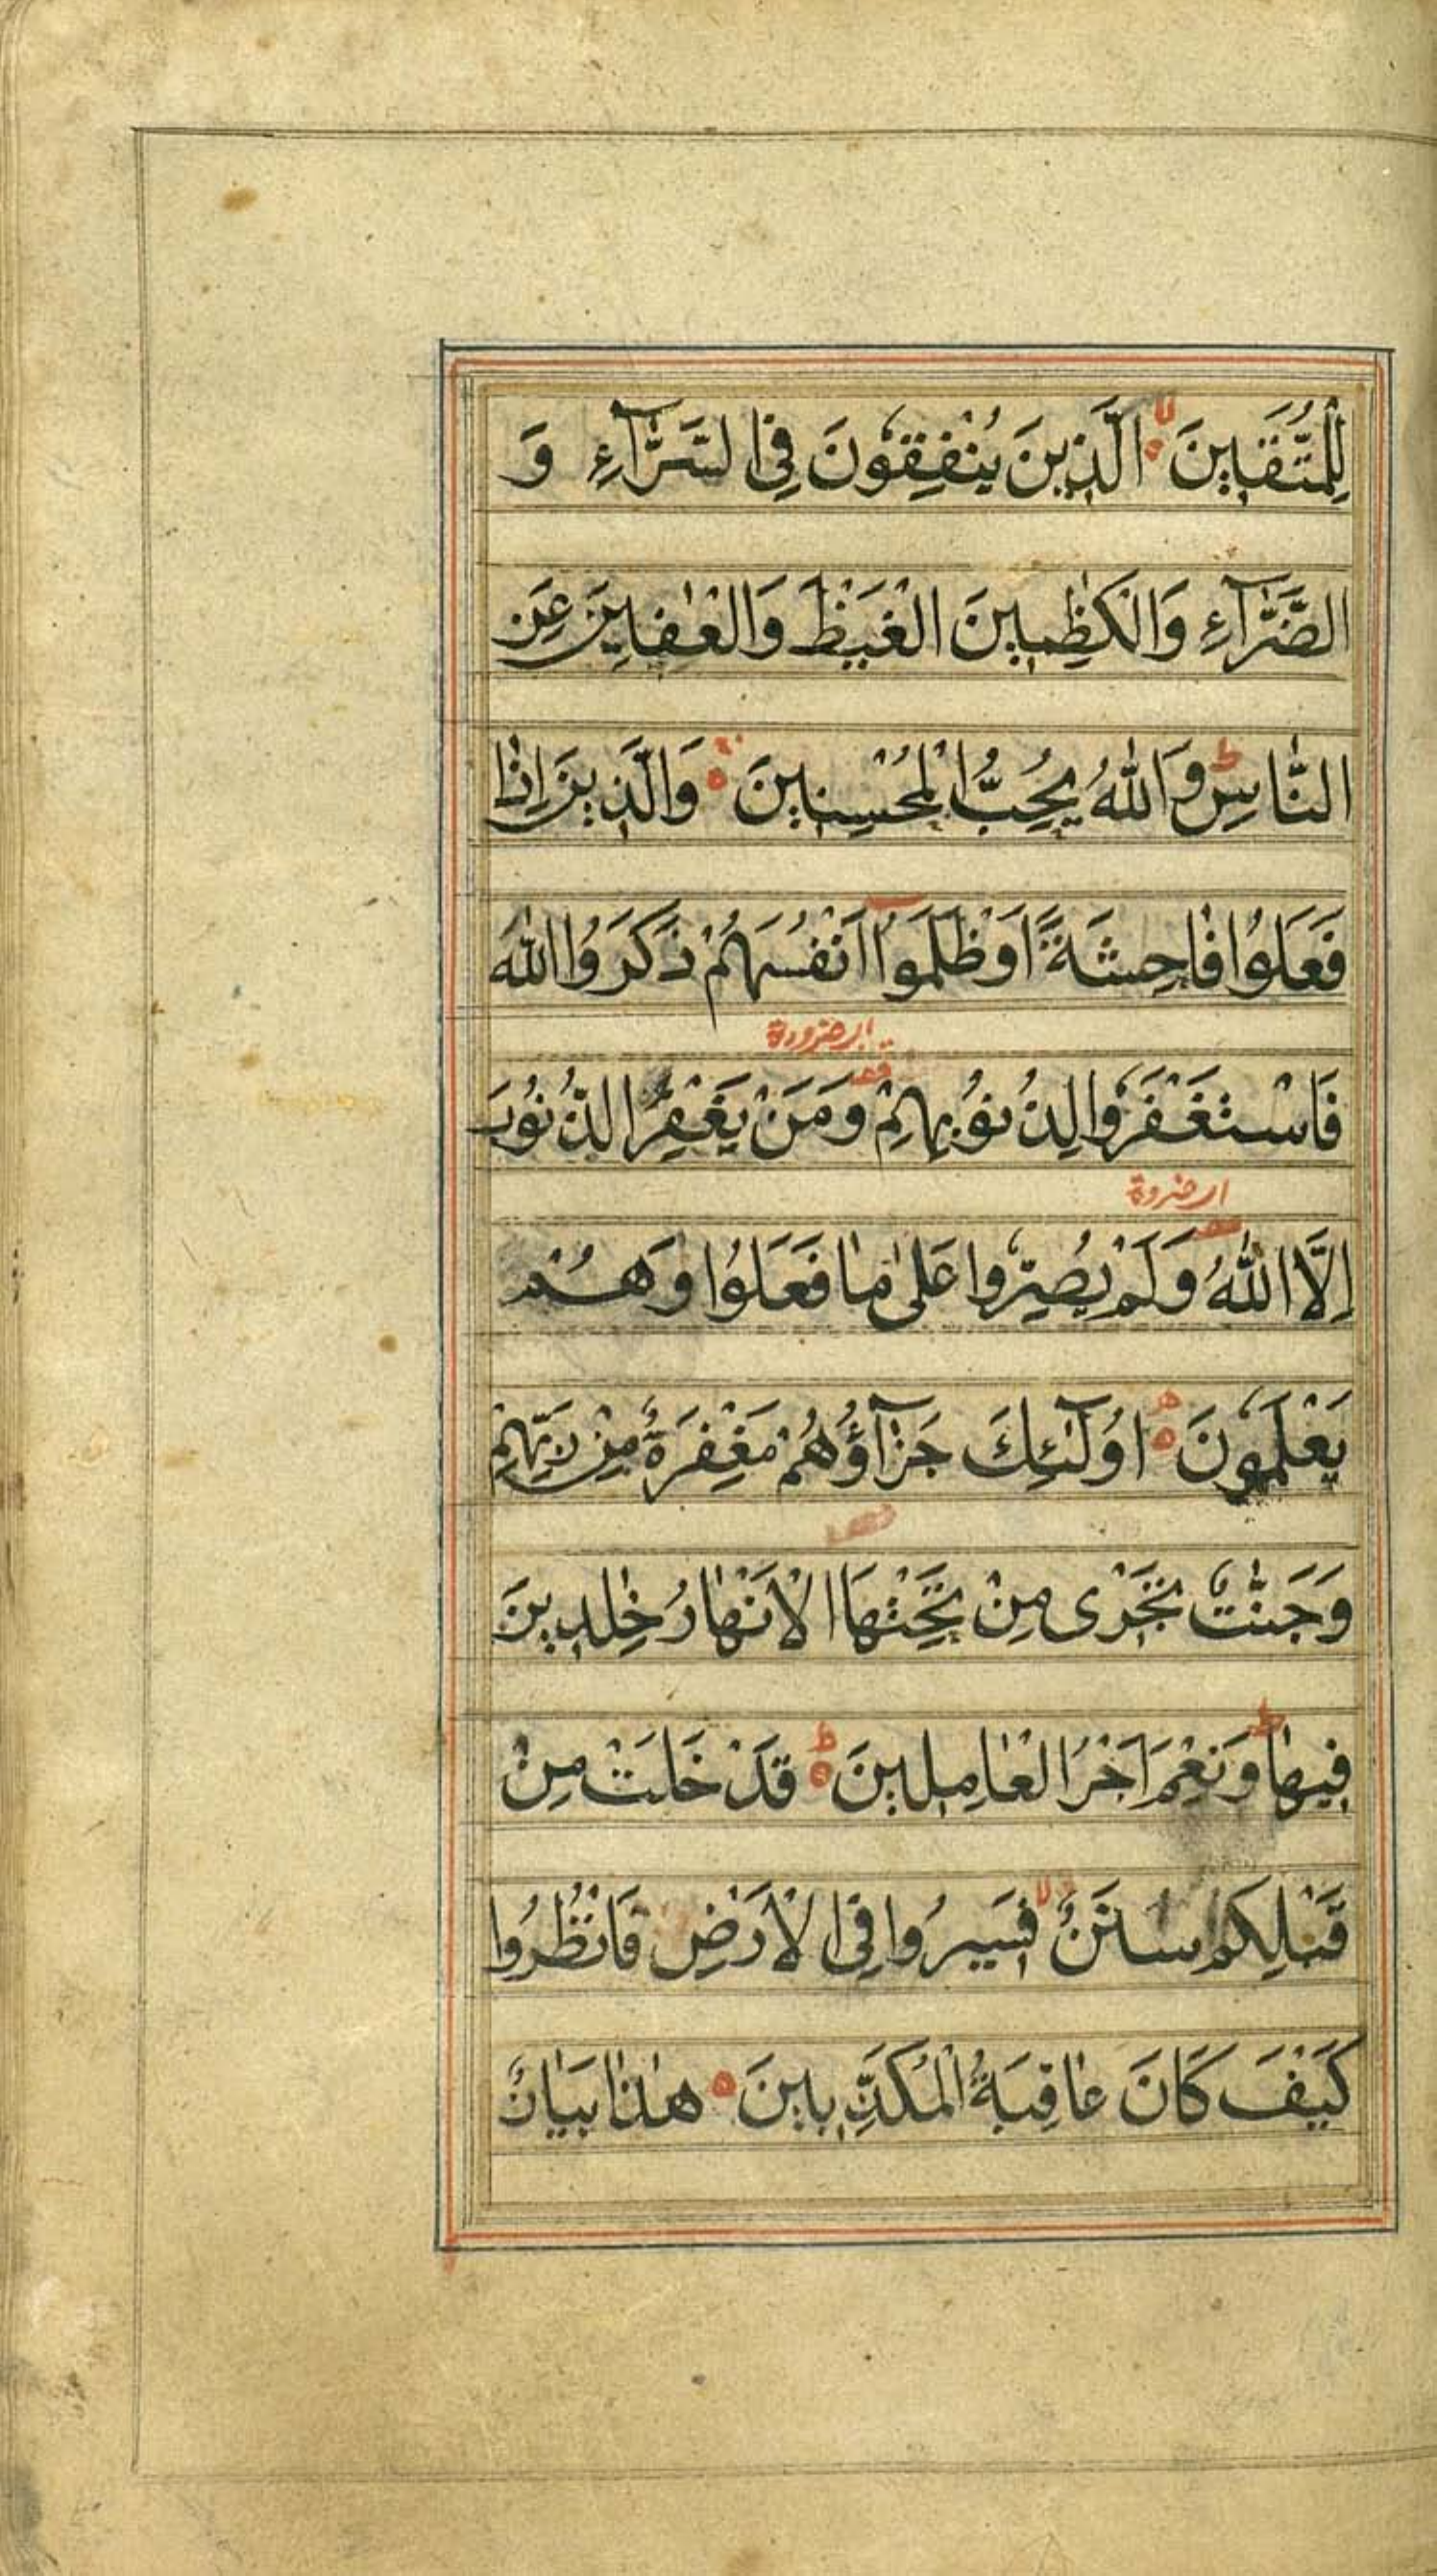 لِلْمُتَّقِينَ لا الَّذِينَ يُنْفِقُونَ فِي السَّرَّآءِ وَ
الضَّرَّآءِ وَالْكٰظِمِينَ الْغَيْظَ وَالْعٰفِينَ عَنِ
النَّاسِ ط وَاللّٰهُ يُحِبُّ الْمُحْسِنِينَ وَالَّذِينَ اِذَا
فَعَلُوْا فَاحِشَةً اَوْ ظَلَمُوْٓا اَنْفُسَهُمْ ذَكَرُوا اللّٰهَ
فَاسْتَغْفَرُوْا لِذُنُوْبِهِمْ وَمَنْ يَغْفِرُ الذُّنُوْبَ
اِلَّا اللّٰهُ وَلَمْ يُصِرُّوْا عَلٰى مَا فَعَلُوْا وَهُمْ
يَعْلَمُوْنَ اُولٰٓئِكَ جَزَآؤُهُمْ مَغْفِرَةٌ مِنْ رَبِّهِمْ
وَجَنّٰتٌ تَجْرِى مِنْ تَحْتِهَا الْاَنْهَارُ خٰلِدِينَ
فِيهَا ط وَنِعْمَ اَجْرُ الْعَامِلِينَ ط قَدْ خَلَتْ مِنْ
قَبْلِكُمْ سُنَنٌ لا فَسِيرُوا فِي الْاَرْضِ فَانْظُرُوا
كَيْفَ كَانَ عَاقِبَةُ الْمُكَذِّبِينَ هٰذَا بَيَانٌ